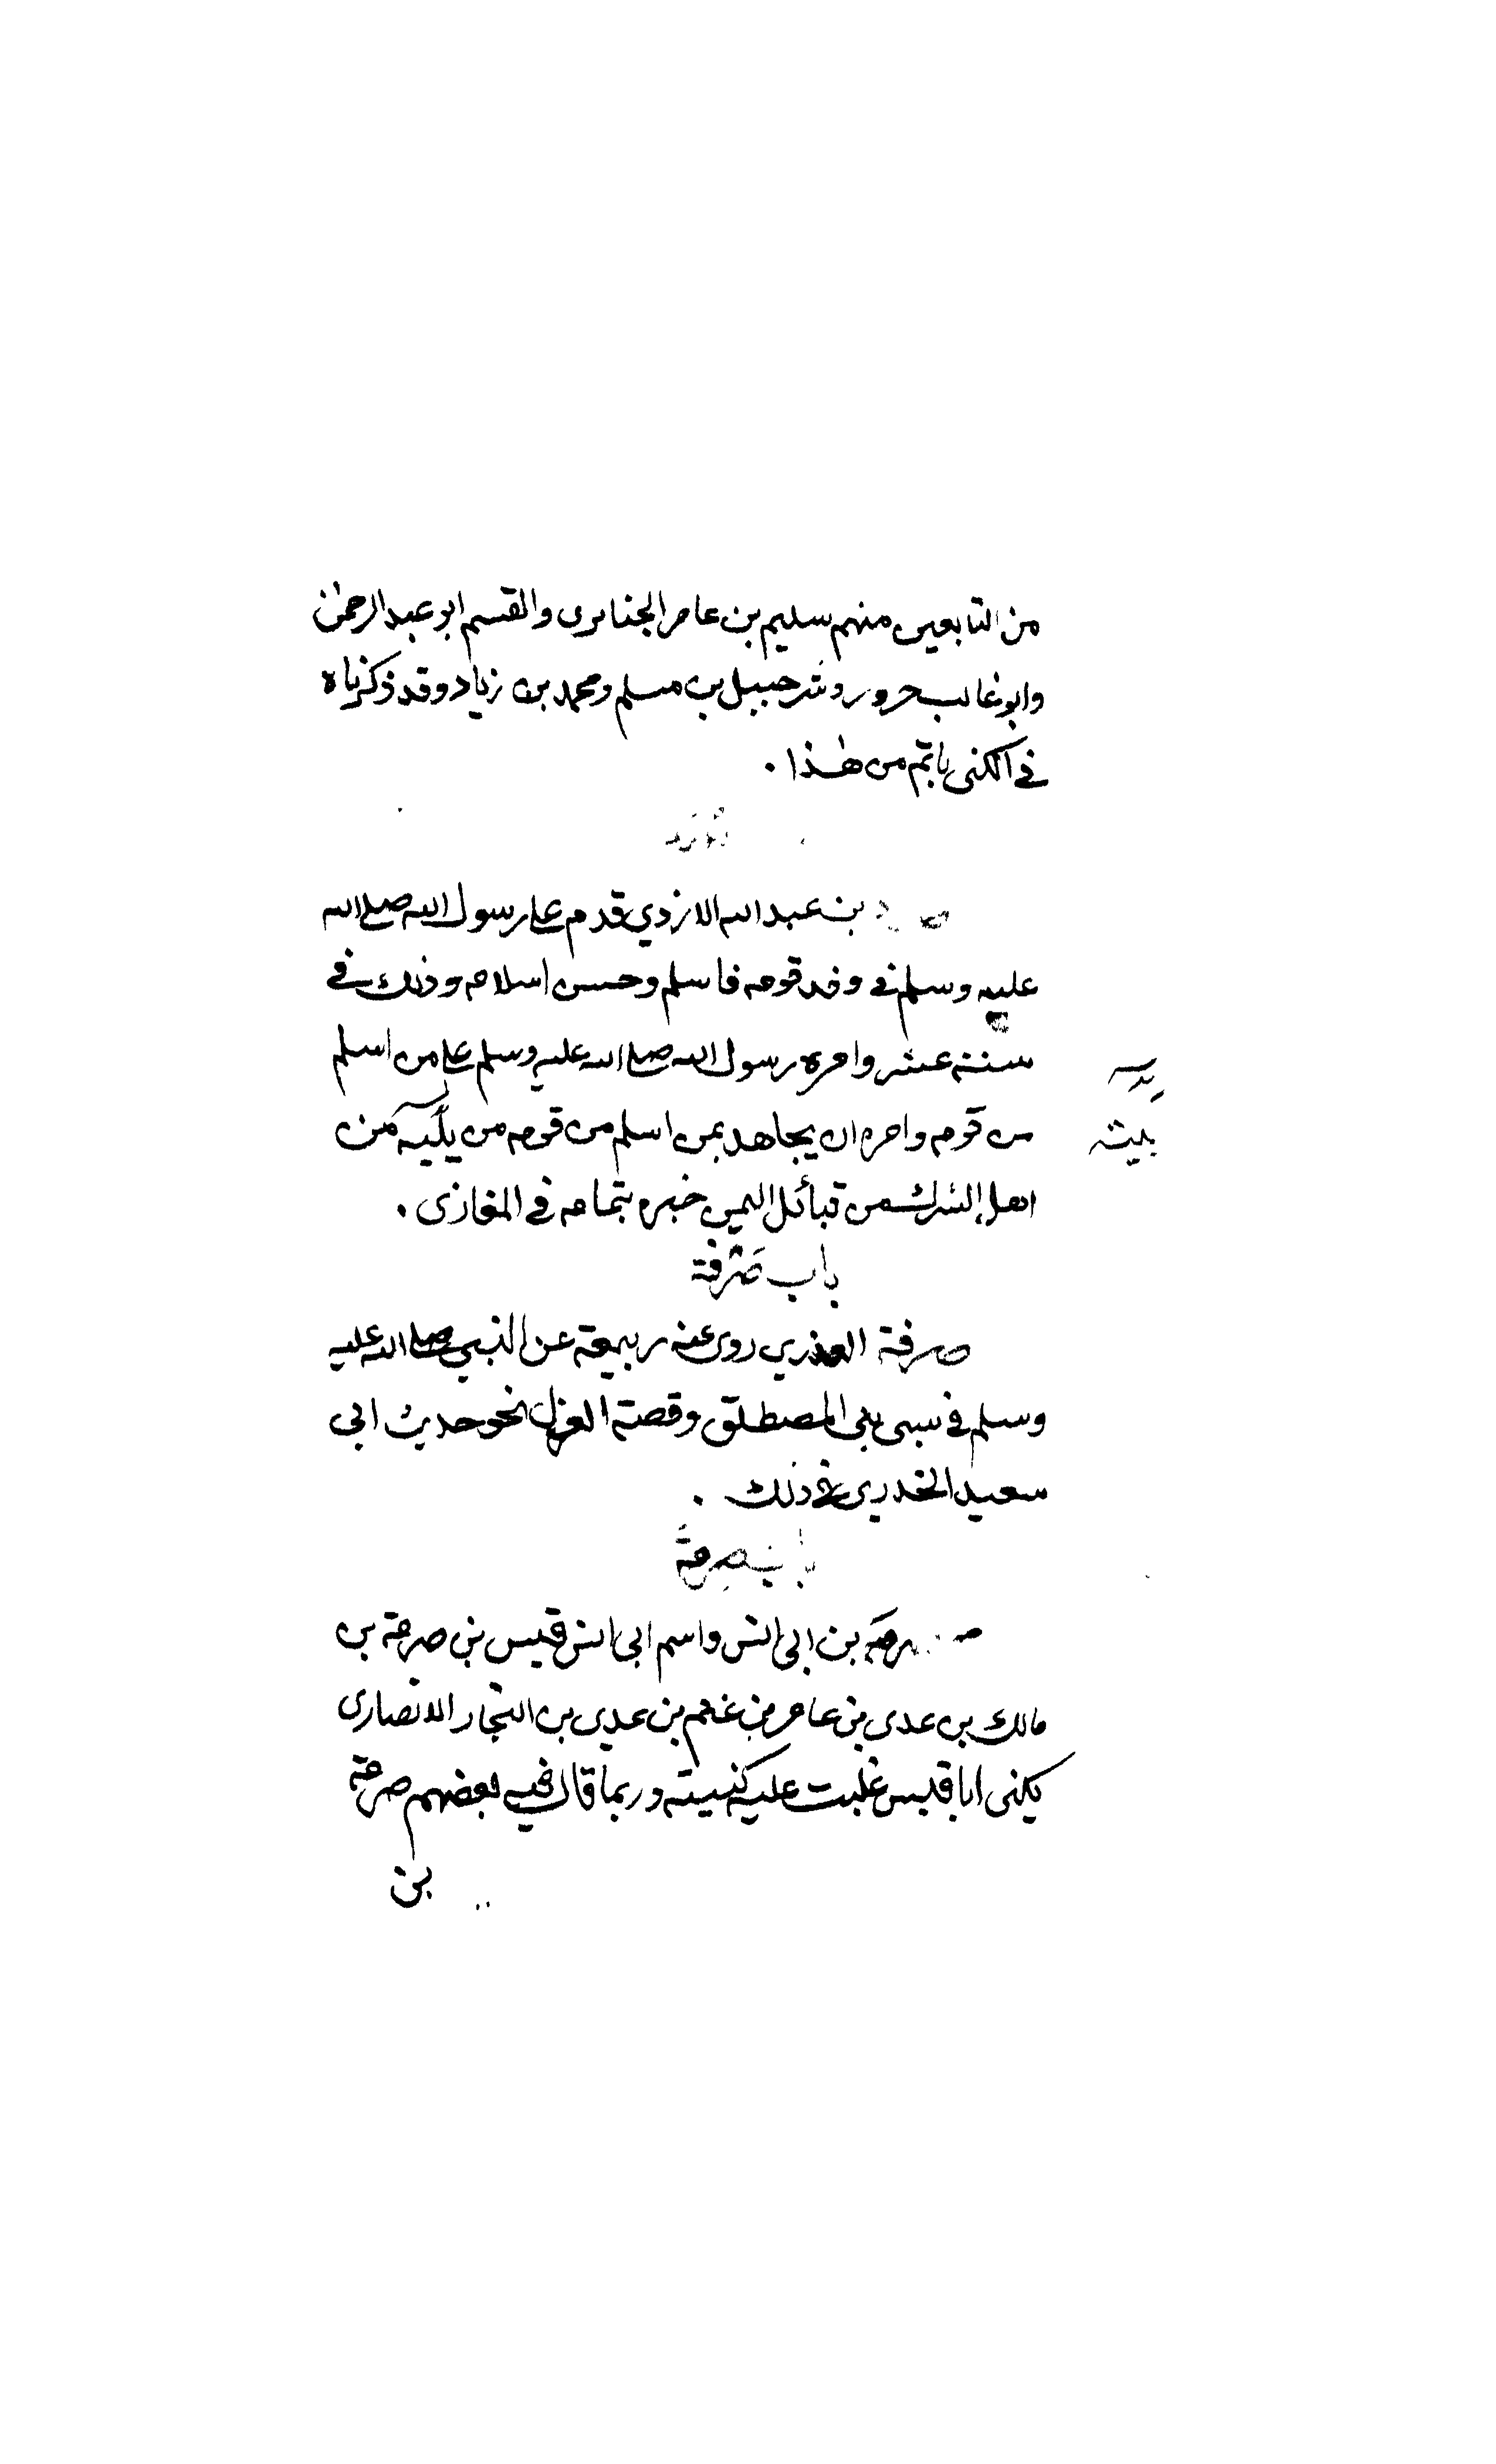 من التابعين منهم سليم بن عامر الجنائرى والقسم ابو عبد الرحمٰن
وابو غالب حرور وشرحبيل بن مسلم ومحمد بن زياد وقد ذكرناه
فى الكنى باتم من هٰذا .
بن عبد الله الازدي قدم على رسول الله صلى الله
عليه وسلم فى وفد قومه فاسلم وحسن اسلامه وذلك فى
سنة عشر وامره رسول الله صلى الله عليه وسلم على من اسلم
من قومه وامره ان يجاهد بمن اسلم من قومه من يليه من
اهل الشرك من قبائل اليمن خبره بتمامه فى المغازى .
باب صرفة
صرفة العذري روى عنه ربيعة عن النبي صلى الله عليه
وسلم فى سبى بنى المصطلق وقصة العزل نحو حديث ابى
سعيد الخدري فى ذلك .
باب صرمة
صرمة بن ابى انس واسم ابى انس قيس بن صرمة بن
مالك بن عدى بن عامر بن غنم بن عدي بن النجار الانصارى
يكنى ابا قيس غلبت عليه كنيته وربما قال فيه بعضهم صرمة
بن